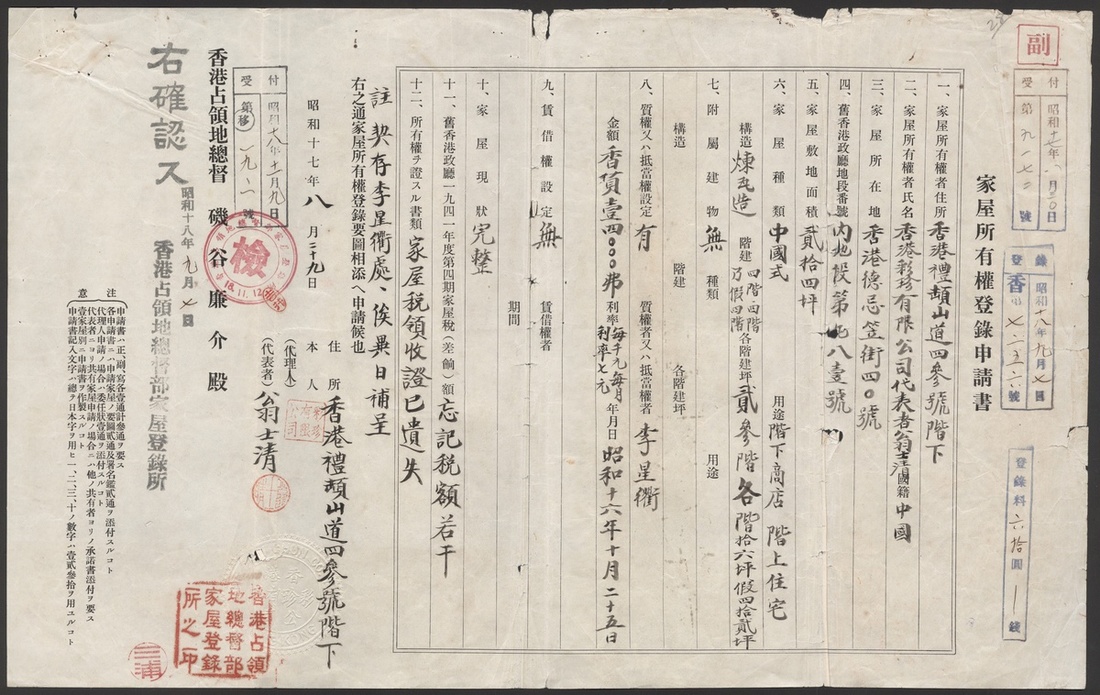 副
付 昭和十七年八月三〇日
受 第九一七二號
登錄 昭和十八年九月七日
香 第七二五六號
登錄料 六拾圓 ー 錢
家屋所有權登錄申請書
一、家屋所有權者住所 香港禮頓山道四參號階下
二、家屋所有權者氏名 香港彩珍有限公司代表者翁士清 國籍 中國
三、家屋所在地 香港德忌笠街四〇號
四、舊香港政廳地段番號 內地段第 八壹號
五、家屋敷地面積 貳拾四坪
六、家屋種類 中國式 用途 階下商店 階上住宅
構造 煉瓦造 階建 四階 四階 乃假四階 各階建坪 貳參階各階拾六坪假四拾貳坪
七、附屬建物 無 種類 用途
構造 階建 各階建坪
八、質權又ハ抵當權設定 有 質權者又ハ抵當權者 李星衢
金額 香貨壹四〇〇〇弗 利率 每千元每月利率七元 年月日 昭和十六年十月二十五日
九、賃借權設定 無 賃借權者
期間
十、家屋現狀 完整
十一、舊香港政廳一九四一年度第四期家屋稅(差餉)額 忘記稅額若干
十二、所有權ヲ證スル書類 家屋稅領收證已遺失
註 契存李星衢處、俟異日補呈
右之通家屋所有權登錄要圖相添ヘ申請候也
昭和十七年八月二十九日
住所 香港禮頓山道四參號階下
本人
(代理人)
(代表者) 翁士清
彩珍有限公司
付 昭和十八年十一月九日
受 第(移)一九、一號
檢
18.11.12
香港占領地總督 磯谷廉介殿
右確認ス
昭和十八年九月七日
香港占領地總督部家屋登錄所
注意
申請書ハ正、副、寫各壹通計參通ヲ要ス
各申請書ニハ申請家屋ノ要圖貳通及署名鑑貳通ヲ添付スルコト
代理人申請ノ場合ハ委任狀壹通ヲ添付スルコト
代表者ニヨリ共有家屋申請ノ場合ニハ他ノ共有者ヨリノ承諾書添付ヲ要ス
壹家屋別ニ申請書ヲ作製スルコト
申請書記入文字ハ總テ日本字ヲ用ヒ一、二、三、十ノ數字ハ壹貳參拾ヲ用ユルコト
香港占領地總督部家屋登錄所之印
三浦